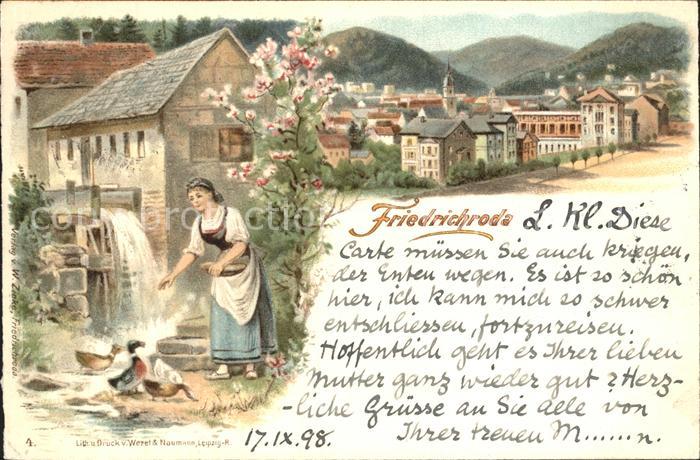 Friedrichroda L. Kl. Diese
Carte müssen Sie auch kriegen,
der Enten wegen. Es ist so schön
hier, ich kann mich so schwer
entschliessen, fortzureisen.
Hoffentlich geht es Ihrer lieben
Mutter ganz wieder gut? Herz-
-liche Grüsse an Sie alle von
Ihrer treuen M......n.
17.IX.98.
4.
Lith. u. Druck v. Wezel & Naumann, Leipzig-R.